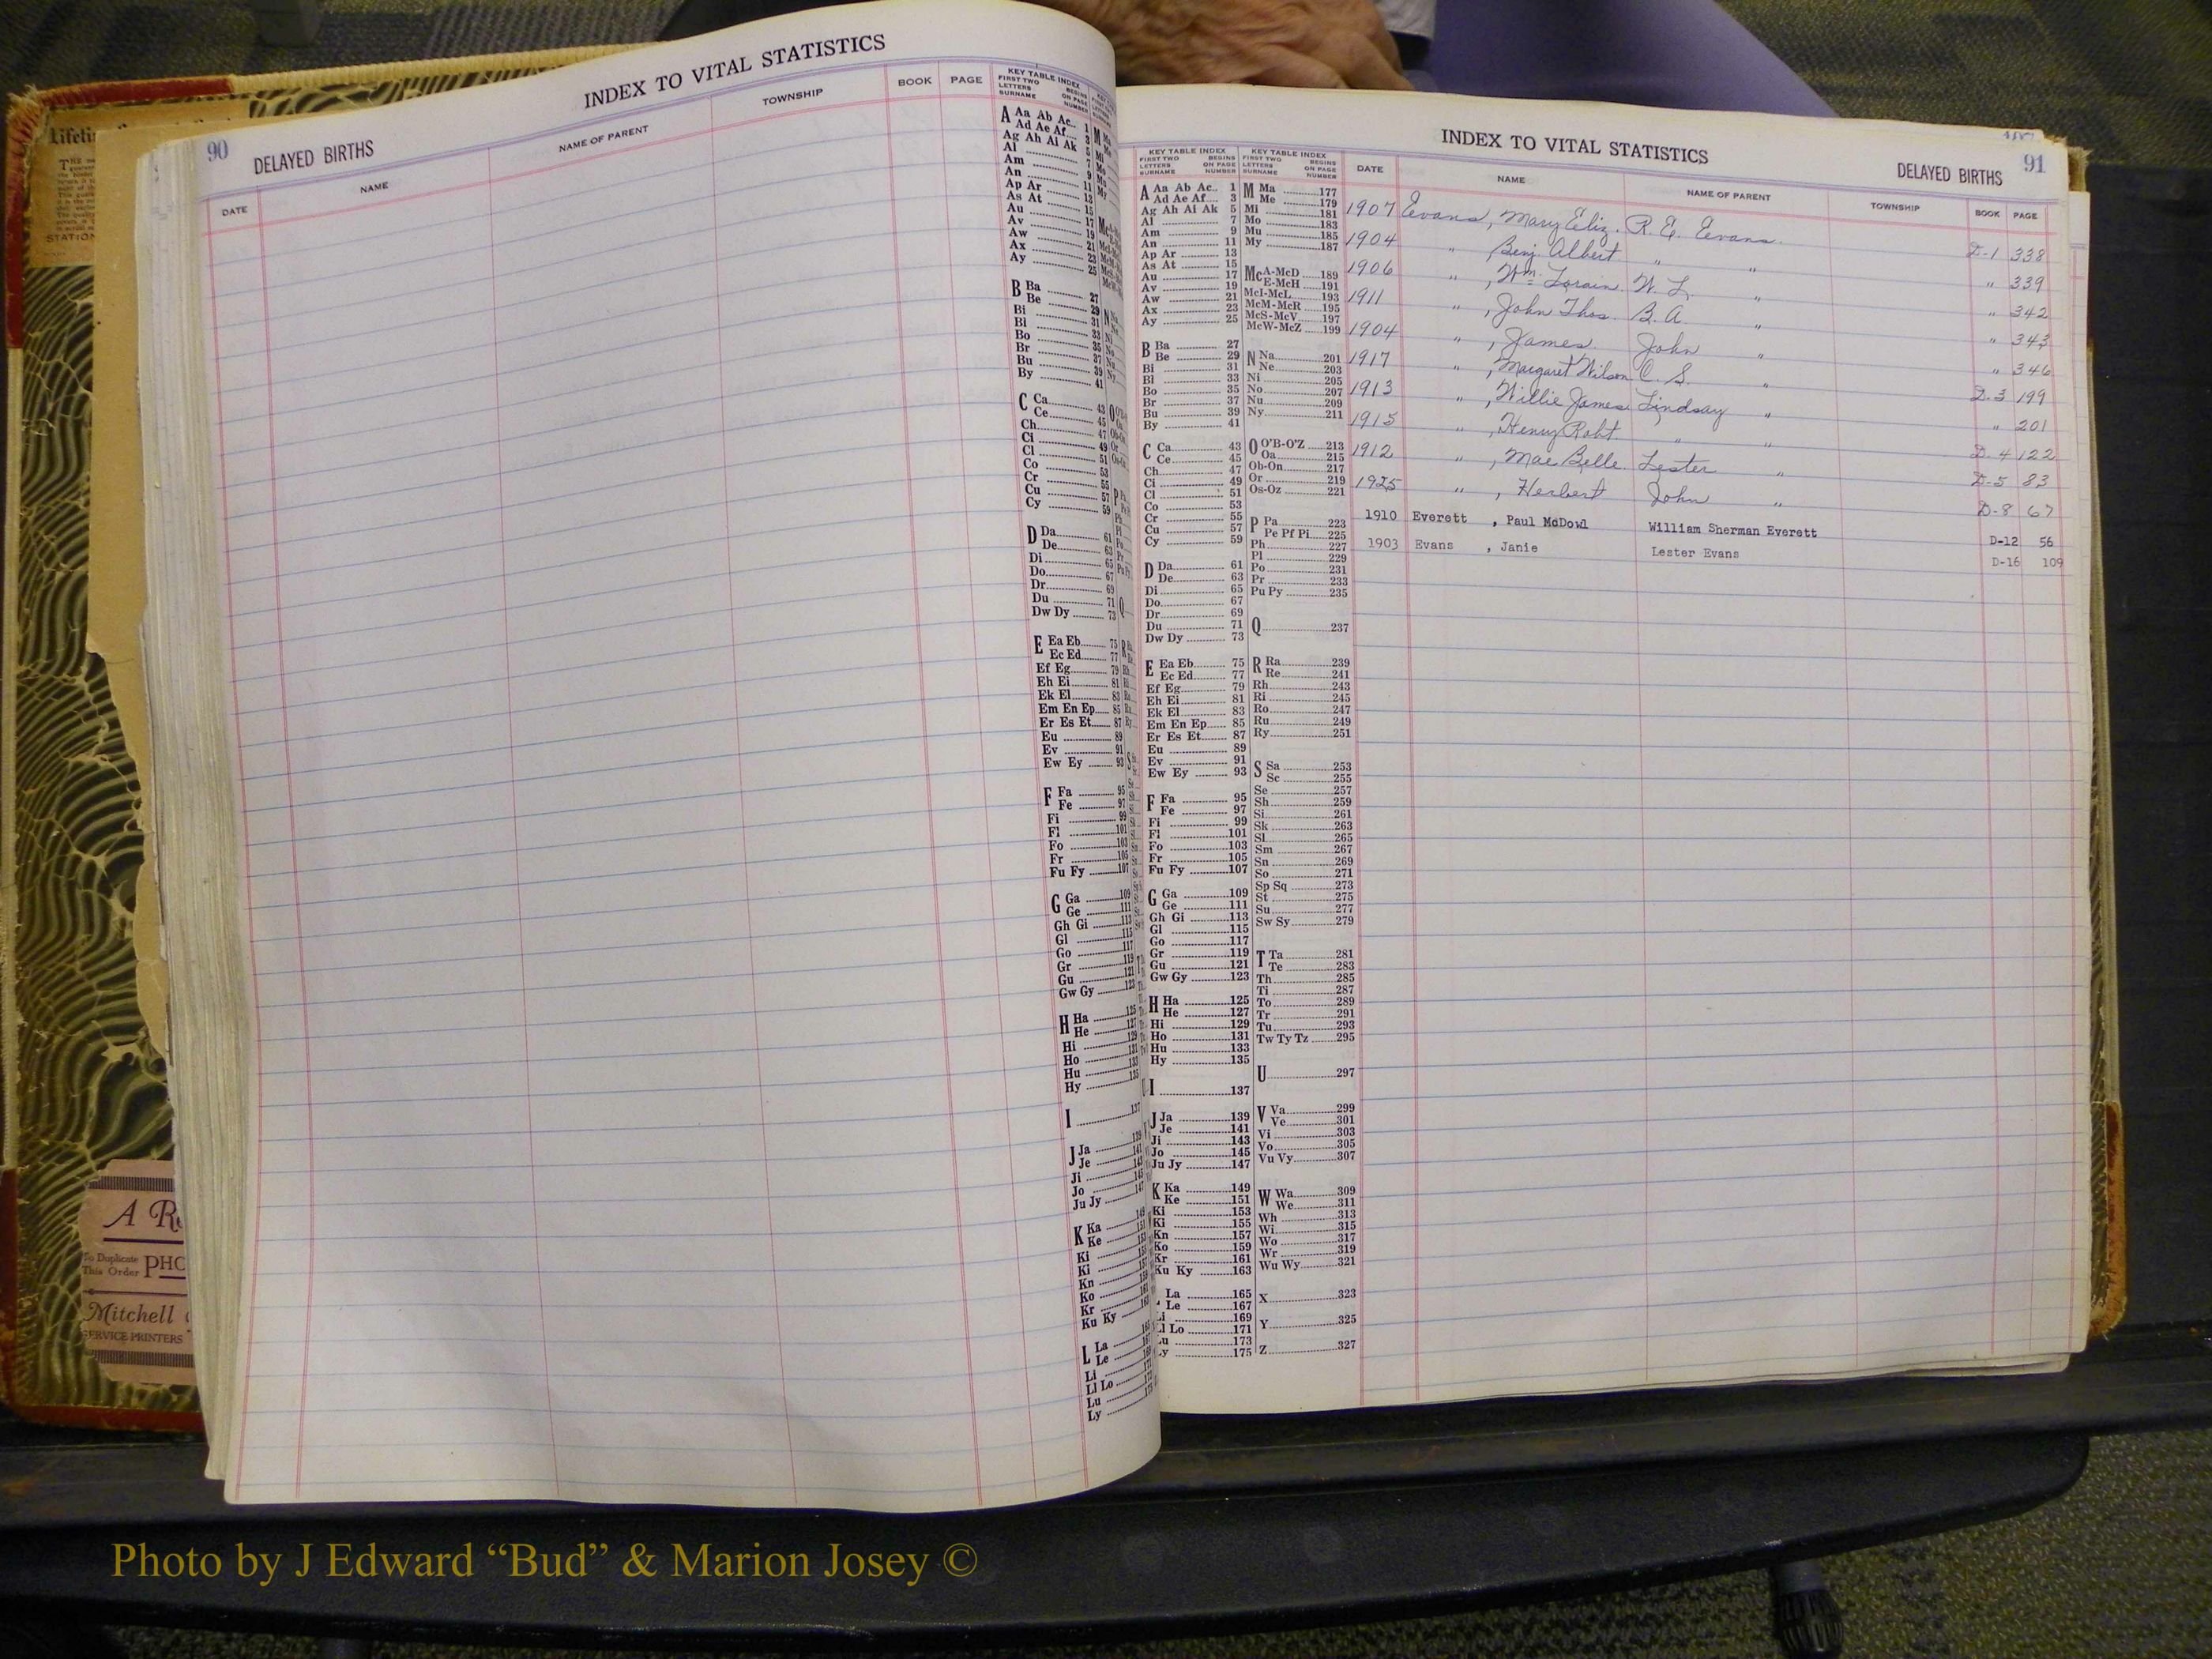 Lifeti
THE
STATION
A R
To Duplicate
This Order PHO
Mitchell
SERVICE PRINTERS
INDEX TO VITAL STATISTICS
90 DELAYED BIRTHS
DATE NAME NAME OF PARENT TOWNSHIP BOOK PAGE
KEY TABLE INDEX
FIRST TWO LETTERS SURNAME BEGINS ON PAGE NUMBER
A Aa Ab Ac 1
Ad Ae Af 3
Ag Ah Ai Ak 5
Al 7
Am 9
An 11
Ap Ar 13
As At 15
Au 17
Av 19
Aw 21
Ax 23
Ay 25
B Ba 27
Be 29
Bi 31
Bl 33
Bo 35
Br 37
Bu 39
By 41
C Ca 43
Ce 45
Ch 47
Ci 49
Cl 51
Co 53
Cr 55
Cu 57
Cy 59
D Da 61
De 63
Di 65
Do 67
Dr 69
Du 71
Dw Dy 73
E Ea Eb 75
Ec Ed 77
Ef Eg 79
Eh Ei 81
Ek El 83
Em En Ep 85
Er Es Et 87
Eu 89
Ev 91
Ew Ey 93
F Fa 95
Fe 97
Fi 99
Fl 101
Fo 103
Fr 105
Fu Fy 107
G Ga 109
Ge 111
Gh Gi 113
Gl 115
Go 117
Gr 119
Gu 121
Gw Gy 123
H Ha 125
He 127
Hi 129
Ho 131
Hu 133
Hy 135
I 137
J Ja 139
Je 141
Ji 143
Jo 145
Ju Jy 147
K Ka 149
Ke 151
Ki
Ki
Kn
Ko
Kr
Ku Ky
L La
Le
Li
Ll Lo
Lu
Ly
INDEX TO VITAL STATISTICS
DELAYED BIRTHS 91
KEY TABLE INDEX
FIRST TWO LETTERS SURNAME BEGINS ON PAGE NUMBER
KEY TABLE INDEX
FIRST TWO LETTERS SURNAME BEGINS ON PAGE NUMBER
DATE NAME NAME OF PARENT TOWNSHIP BOOK PAGE
A Aa Ab Ac 1
Ad Ae Af 3
Ag Ah Ai Ak 5
Al 7
Am 9
An 11
Ap Ar 13
As At 15
Au 17
Av 19
Aw 21
Ax 23
Ay 25
B Ba 27
Be 29
Bi 31
Bl 33
Bo 35
Br 37
Bu 39
By 41
C Ca 43
Ce 45
Ch 47
Ci 49
Cl 51
Co 53
Cr 55
Cu 57
Cy 59
D Da 61
De 63
Di 65
Do 67
Dr 69
Du 71
Dw Dy 73
E Ea Eb 75
Ec Ed 77
Ef Eg 79
Eh Ei 81
Ek El 83
Em En Ep 85
Er Es Et 87
Eu 89
Ev 91
Ew Ey 93
F Fa 95
Fe 97
Fi 99
Fl 101
Fo 103
Fr 105
Fu Fy 107
G Ga 109
Ge 111
Gh Gi 113
Gl 115
Go 117
Gr 119
Gu 121
Gw Gy 123
H Ha 125
He 127
Hi 129
Ho 131
Hu 133
Hy 135
I 137
J Ja 139
Je 141
Ji 143
Jo 145
Ju Jy 147
K Ka 149
Ke 151
Ki 153
Ki 155
Kn 157
Ko 159
Kr 161
Ku Ky 163
La 165
Le 167
Li 169
Ll Lo 171
Lu 173
Ly 175
M Ma 177
Me 179
Mi 181
Mo 183
Mu 185
My 187
McA-McD 189
E-McH 191
McI-McL 193
McM-McR 195
McS-McV 197
McW-McZ 199
N Na 201
Ne 203
Ni 205
No 207
Nu 209
Ny 211
O O'B-O'Z 213
Oa 215
Ob-On 217
Or 219
Os-Oz 221
P Pa 223
Pe Pf Pi 225
Ph 227
Pl 229
Po 231
Pr 233
Pu Py 235
Q 237
R Ra 239
Re 241
Rh 243
Ri 245
Ro 247
Ru 249
Ry 251
S Sa 253
Sc 255
Se 257
Sh 259
Si 261
Sk 263
Sl 265
Sm 267
Sn 269
So 271
Sp Sq 273
St 275
Su 277
Sw Sy 279
T Ta 281
Te 283
Th 285
Ti 287
To 289
Tr 291
Tu 293
Tw Ty Tz 295
U 297
V Va 299
Ve 301
Vi 303
Vo 305
Vu Vy 307
W Wa 309
We 311
Wh 313
Wi 315
Wo 317
Wr 319
Wu Wy 321
X 323
Y 325
Z 327
1907 Evans, Mary Eliz. R. E. Evans. D-1 338
1904 " , Benj. Albert " " " 339
1906 " , Wm. Lorain W. L. " " 342
1911 " , John Thos. B. A. " " 343
1904 " , James John " " 346
1917 " , Margaret Wilson C. S. " D-3 199
1913 " , Willie James Lindsay " " 201
1915 " , Henry Robt. " " D-4 122
1912 " , Mae Belle Lester " D-5 83
1925 " , Herbert John " D-8 67
1910 Everett , Paul McDowl William Sherman Everett D-12 56
1903 Evans , Janie Lester Evans D-16 109
Photo by J Edward “Bud” & Marion Josey ©